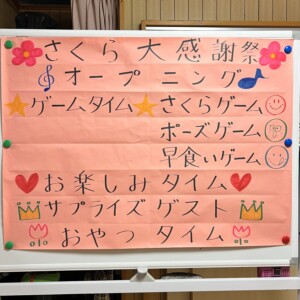 さくら大感謝祭
オープニング
ゲームタイム さくらゲーム
ポーズゲーム
早食いゲーム
お楽しみタイム
サプライズゲスト
おやつタイム